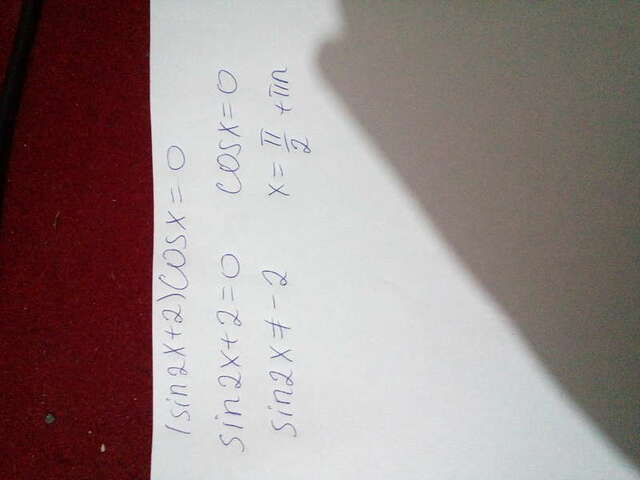 (sin2x+2)cosx=0
sin2x+2=0 cosx=0
sin2x≠-2 x=π/2+πn